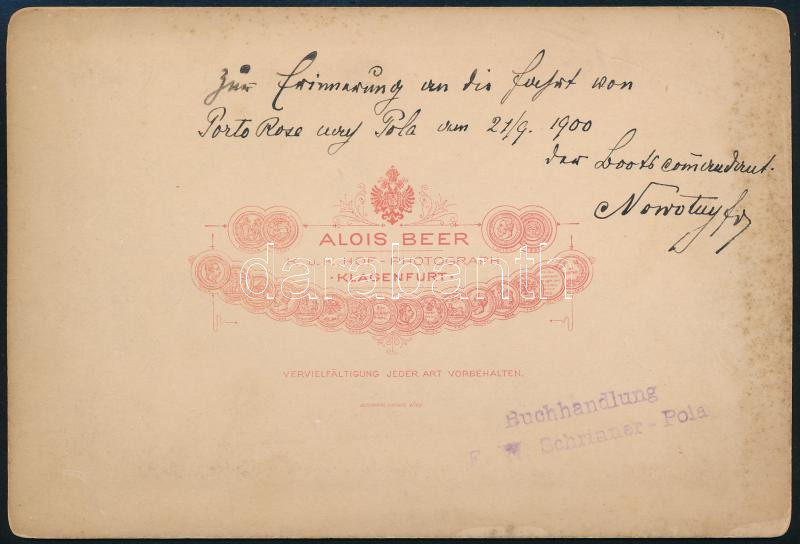 Zur Erinnerung an die Fahrt von
Porto Rose nach Pola am 21/9. 1900
der Bootscom̄andant.
Nowotny
ALOIS BEER
K. u. K. HOF-PHOTOGRAPH
·KLAGENFURT·
darabanth
VERVIELFÄLTIGUNG JEDER ART VORBEHALTEN.
Buchhandlung
F. W. Schrinner - Pola